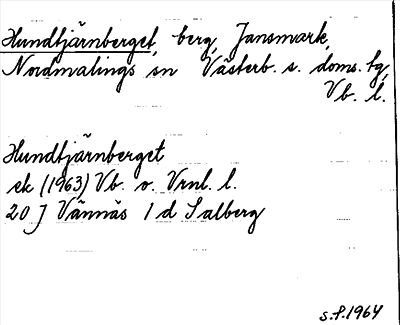 Hundtjärnberget, berg, Jansmark,
Nordmalings sn Västerb. s. doms. tg,
Vb. l.
Hundtjärnberget
ek (1963) Vb. o. Vrnl. l.
20 J Vännäs 1 d Salberg
s.f. 1964